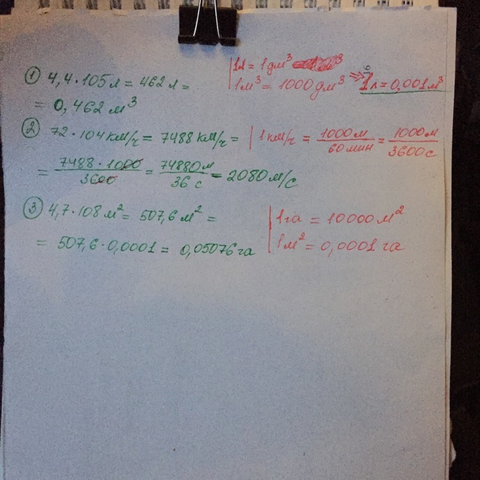 ① 4,4 · 105 л = 462 л =
= 0,462 м³
1л = 1 дм³
1м³ = 1000 дм³ ⇒ 1л = 0,001 м³
② 72 · 104 км/ч = 7488 км/ч =
1 км/ч = 1000 м / 60 мин = 1000 м / 3600 с
= 7488 · 1000 / 3600 = 74880 м / 36 с = 2080 м/с
③ 4,7 · 108 м² = 507,6 м² =
= 507,6 · 0,0001 = 0,05076 га
1 га = 10000 м²
1 м² = 0,0001 га